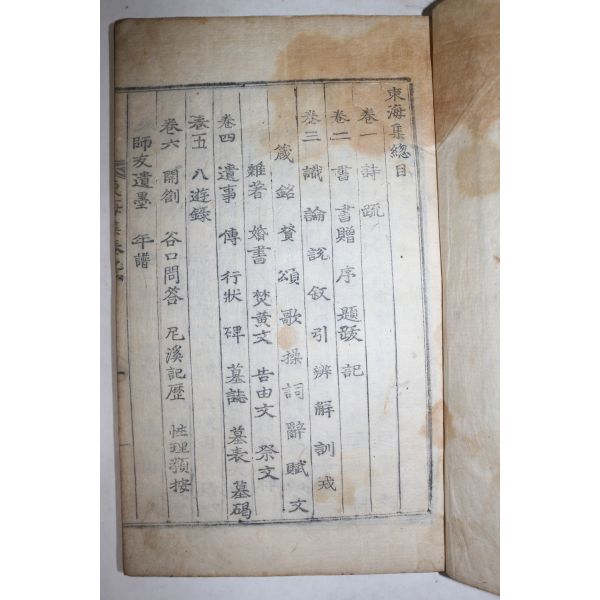 東海集總目
卷一 詩 疏
卷二 書 書贈 序 題跋 記
卷三 識 論 說 叙 引 辨 解 訓 戒
箴 銘 贊 頌 歌 操 詞 辭 賦 文
雜著 婚書 焚黃文 告由文 祭文
卷四 遺事 傳 行狀 碑 墓誌 墓表 墓碣
卷五 八遊錄
卷六 開劄 谷口問答 尼溪記歷 性理類按
師友遺墨 年譜